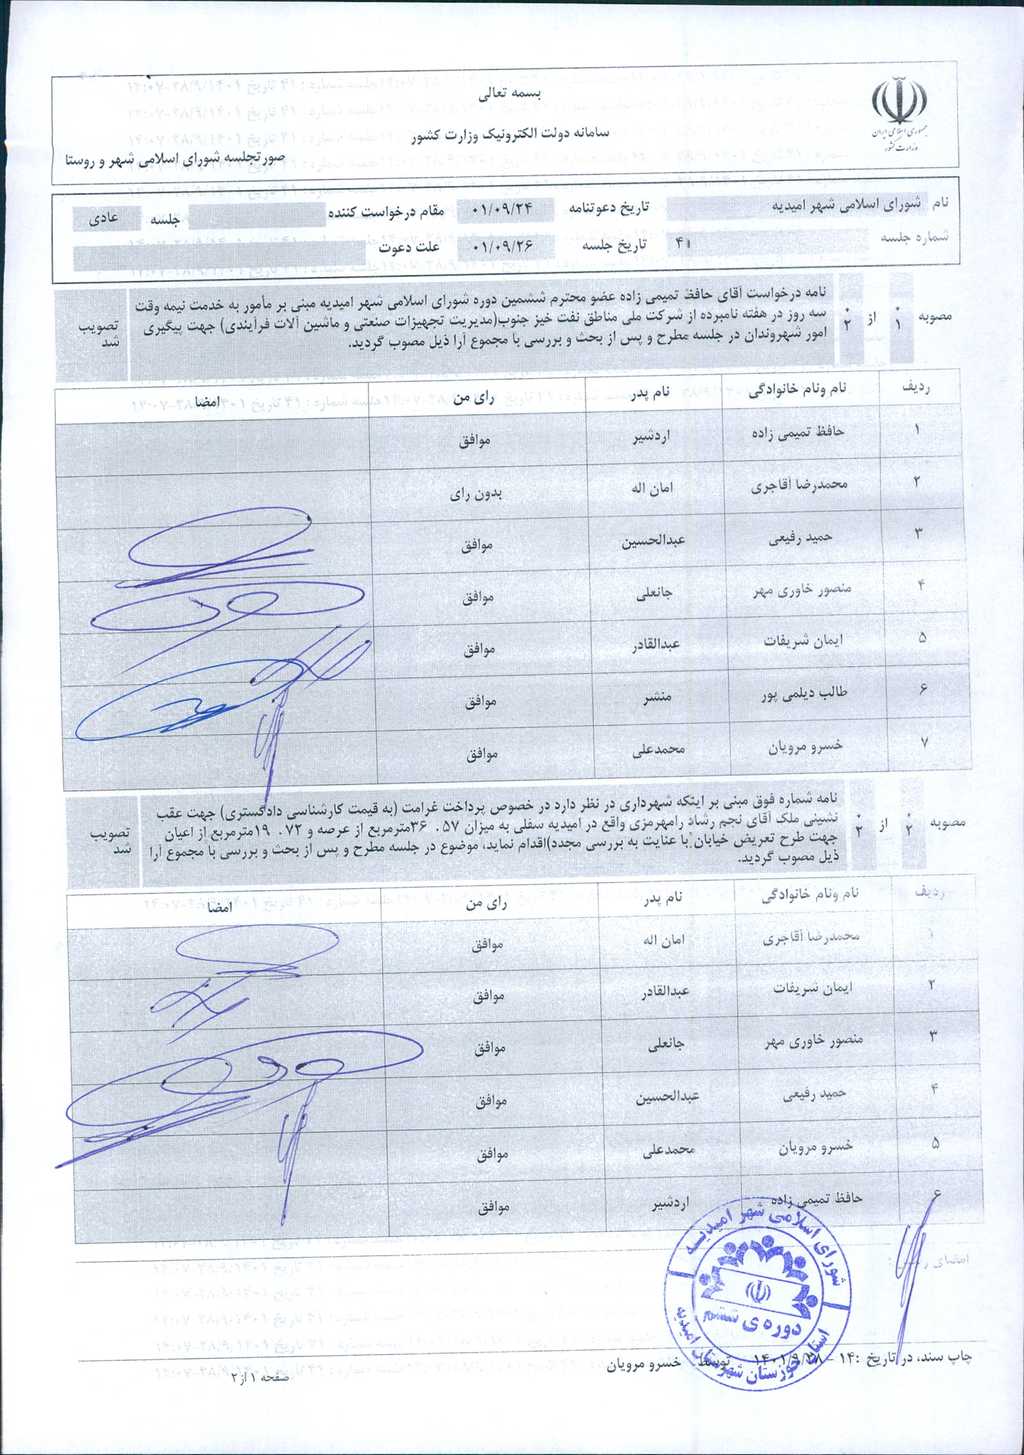 بسمه تعالی
سامانه دولت الکترونیک وزارت کشور
صورتجلسه شورای اسلامی شهر و روستا
جمهوری اسلامی ایران
وزارت کشور
نام شورای اسلامی شهر امیدیه تاریخ دعوتنامه ۰۱/۰۹/۲۴ مقام درخواست کننده جلسه عادی
شماره جلسه ۴۱ تاریخ جلسه ۰۱/۰۹/۲۶ علت دعوت
مصوبه ۰۱ از ۰۲
نامه درخواست آقای حافظ تمیمی زاده عضو محترم ششمین دوره شورای اسلامی شهر امیدیه مبنی بر مأمور به خدمت نیمه وقت
سه روز در هفته نامبرده از شرکت ملی مناطق نفت خیز جنوب(مدیریت تجهیزات صنعتی و ماشین آلات فرآیندی) جهت پیگیری
امور شهروندان در جلسه مطرح و پس از بحث و بررسی با مجموع آرا ذیل مصوب گردید.
تصویب شد
ردیف نام ونام خانوادگی نام پدر رای من امضا
۱ حافظ تمیمی زاده اردشیر موافق
۲ محمدرضا آقاجری امان اله بدون رای
۳ حمید رفیعی عبدالحسین موافق
۴ منصور خاوری مهر جانعلی موافق
۵ ایمان شریفات عبدالقادر موافق
۶ طالب دیلمی پور منتشر موافق
۷ خسرو مرویان محمدعلی موافق
مصوبه ۰۲ از ۰۲
نامه شماره فوق مبنی بر اینکه شهرداری در نظر دارد در خصوص پرداخت غرامت (به قیمت کارشناسی دادگستری) جهت عقب
نشینی ملک آقای نجم رشاد رامهرمزی واقع در امیدیه سفلی به میزان ۵۷ .۳۶مترمربع از عرصه و ۷۲ .۱۹مترمربع از اعیان
جهت طرح تعریض خیابان با عنایت به بررسی مجدد)اقدام نماید، موضوع در جلسه مطرح و پس از بحث و بررسی با مجموع آرا
ذیل مصوب گردید.
تصویب شد
ردیف نام ونام خانوادگی نام پدر رای من امضا
۱ محمدرضا آقاجری امان اله موافق
۲ ایمان شریفات عبدالقادر موافق
۳ منصور خاوری مهر جانعلی موافق
۴ حمید رفیعی عبدالحسین موافق
۵ خسرو مرویان محمدعلی موافق
۶ حافظ تمیمی زاده اردشیر موافق
شورای اسلامی شهر امیدیه
دوره ی ششم
استان خوزستان شهرستان امیدیه
امضای
چاپ سند، در تاریخ :۱۴ - ۱۴۰۱/۹/۲۸ توسط خسرو مرویان
صفحه ۱ از ۲